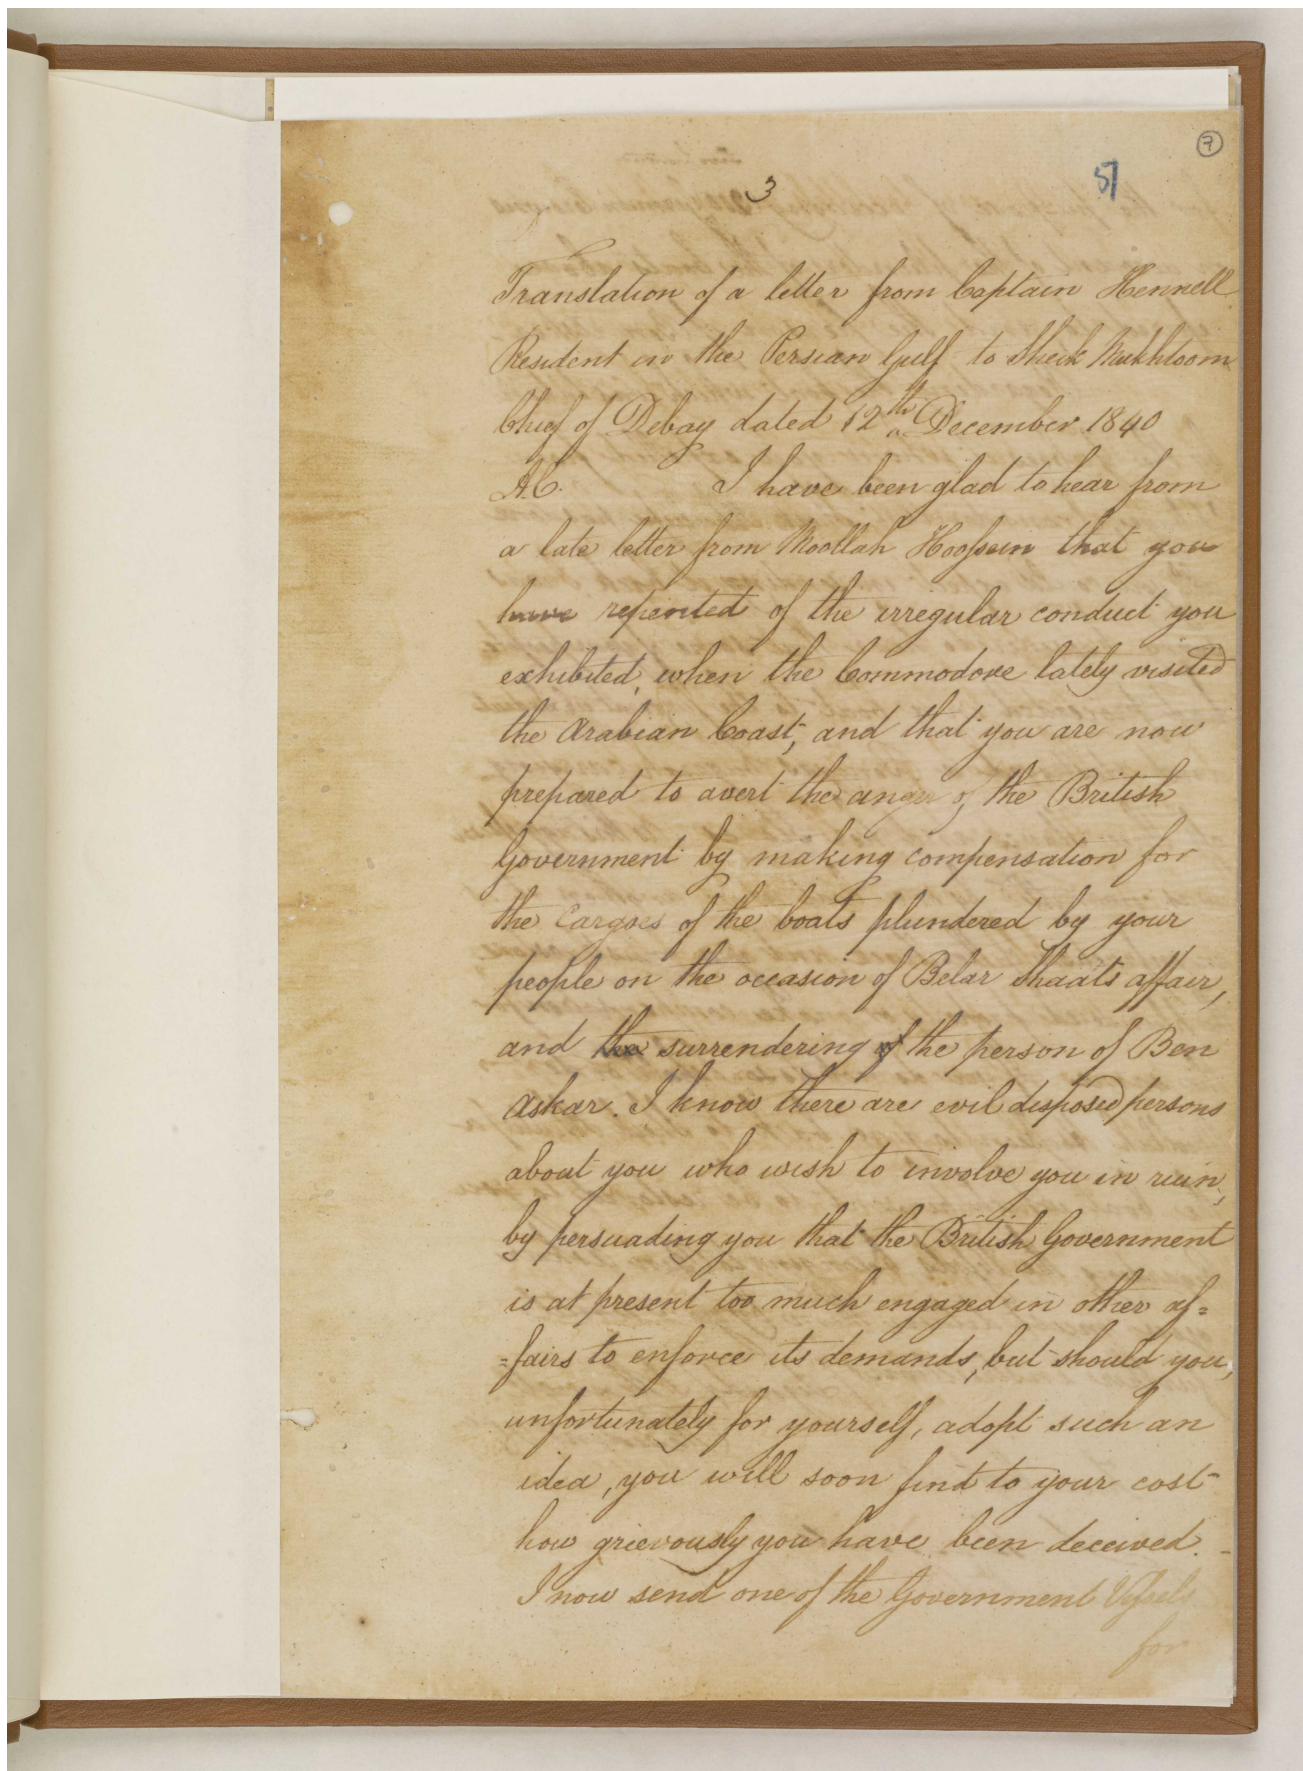 7
51
3
Translation of a letter from Captain Hennell
Resident in the Persian Gulf to Sheik Mukhtoom
Chief of Debay dated 12th December 1840
A.C. I have been glad to hear from
a late letter from Moollah Hoossein that you
have repented of the irregular conduct you
exhibited, when the Commodore lately visited
the Arabian Coast, and that you are now
prepared to avert the anger of the British
Government by making compensation for
the Cargoes of the boats plundered by your
people on the occasion of Belar Shaats affair,
and the surrendering of the person of Ben
Askar. I know there are evil disposed persons
about you who wish to involve you in ruin,
by persuading you that the British Government
is at present too much engaged in other af=
=fairs to enforce its demands, but should you,
unfortunately for yourself, adopt such an
idea, you will soon find to your cost
how grievously you have been deceived. -
I now send one of the Government Vessels
for